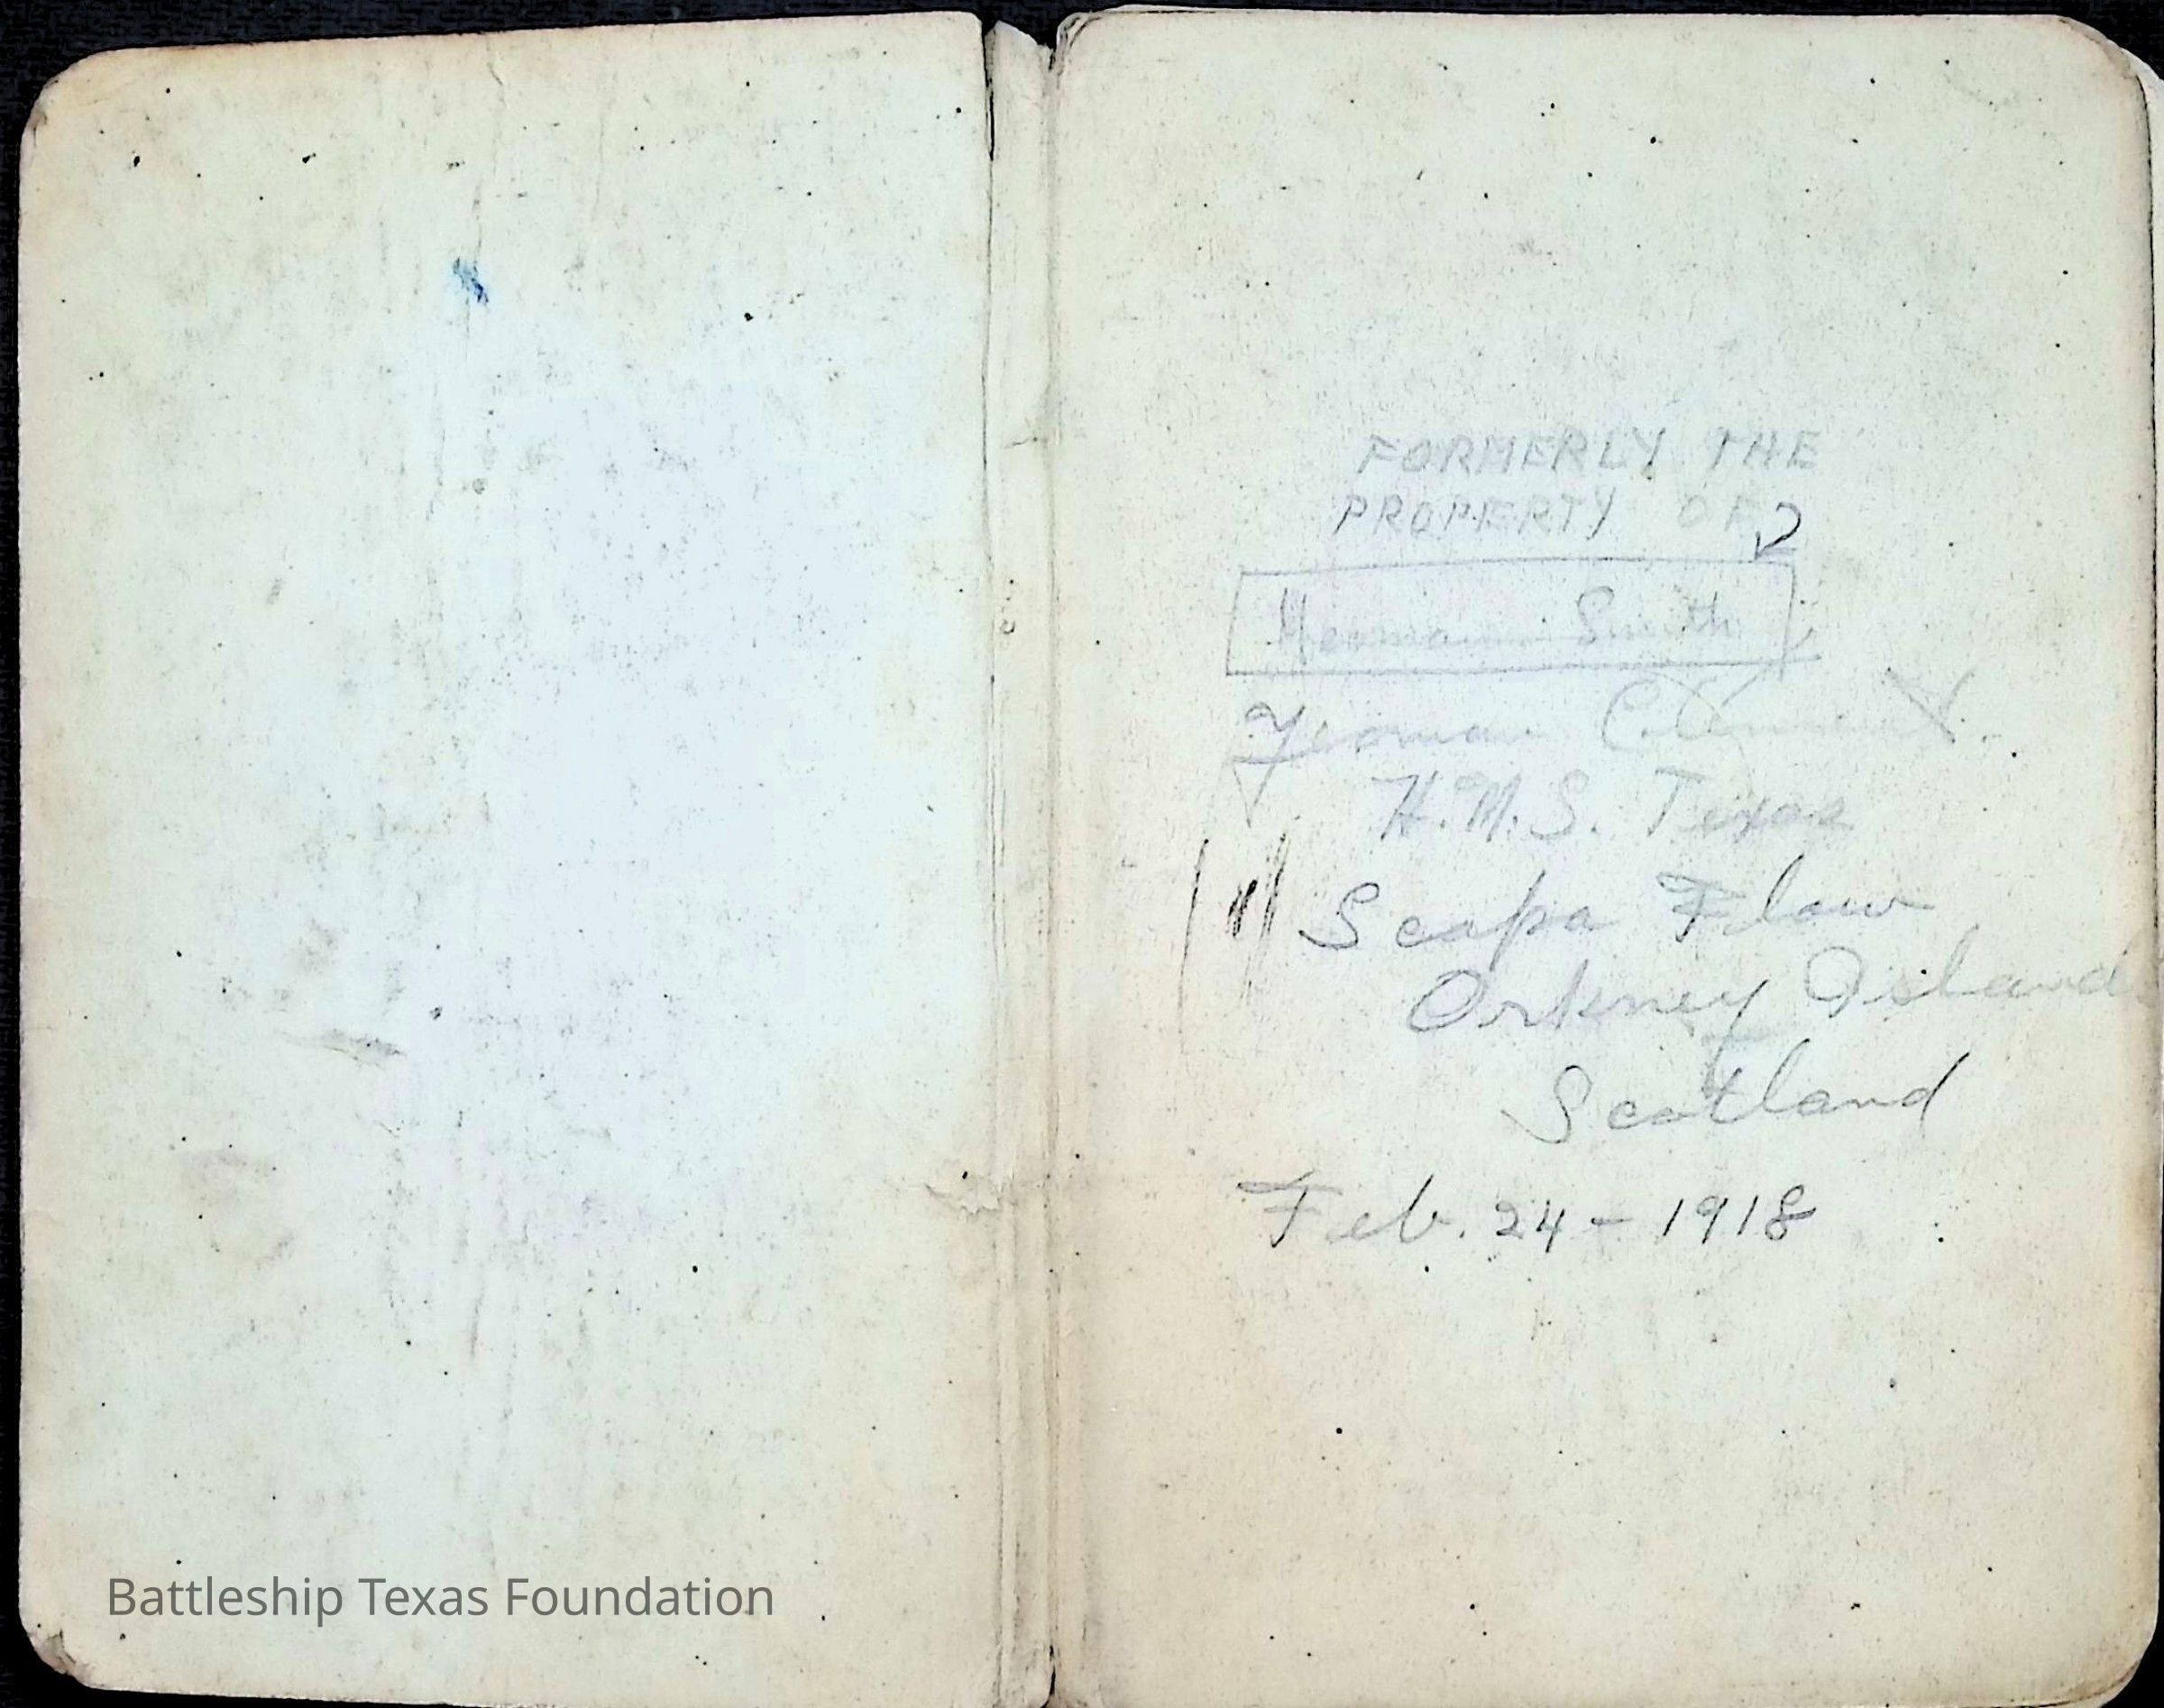 FORMERLY THE
PROPERTY OF
Smith
Yeoman
H.M.S. Texas
Scapa Flow
Orkney Island
Scotland
Feb. 24 - 1918
Battleship Texas Foundation